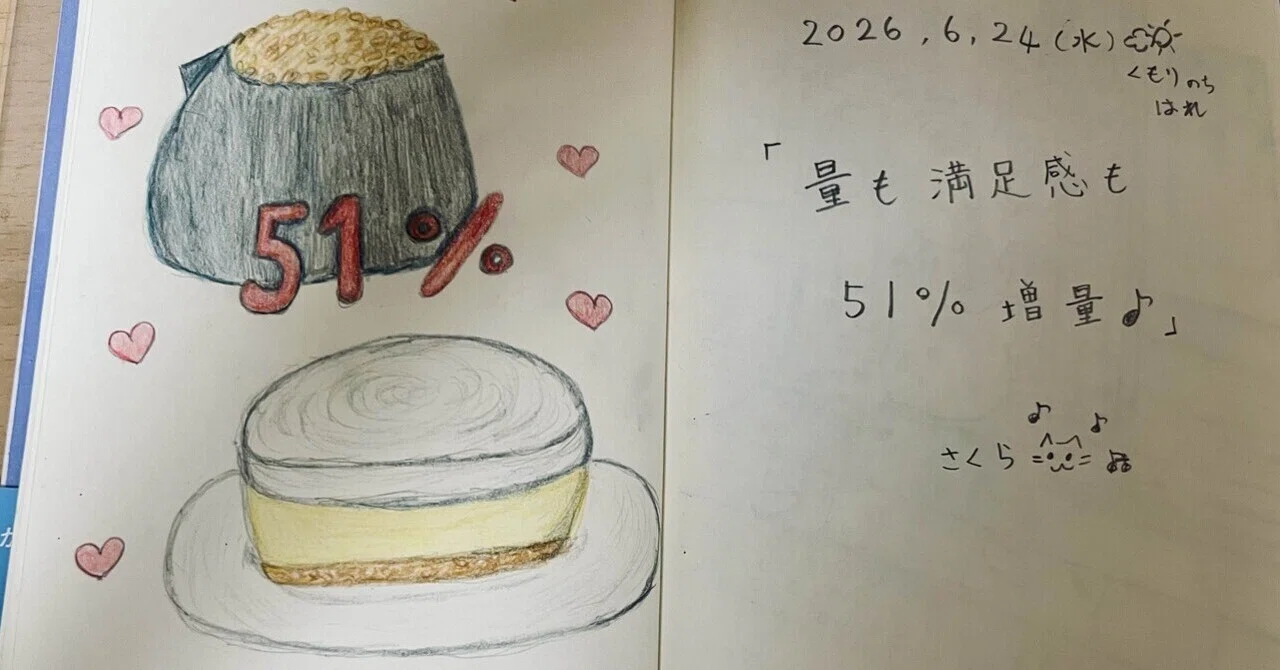 51%
2026.6.24(水)
くもりのち
はれ
「量も満足感も
51%増量♪」
さくら